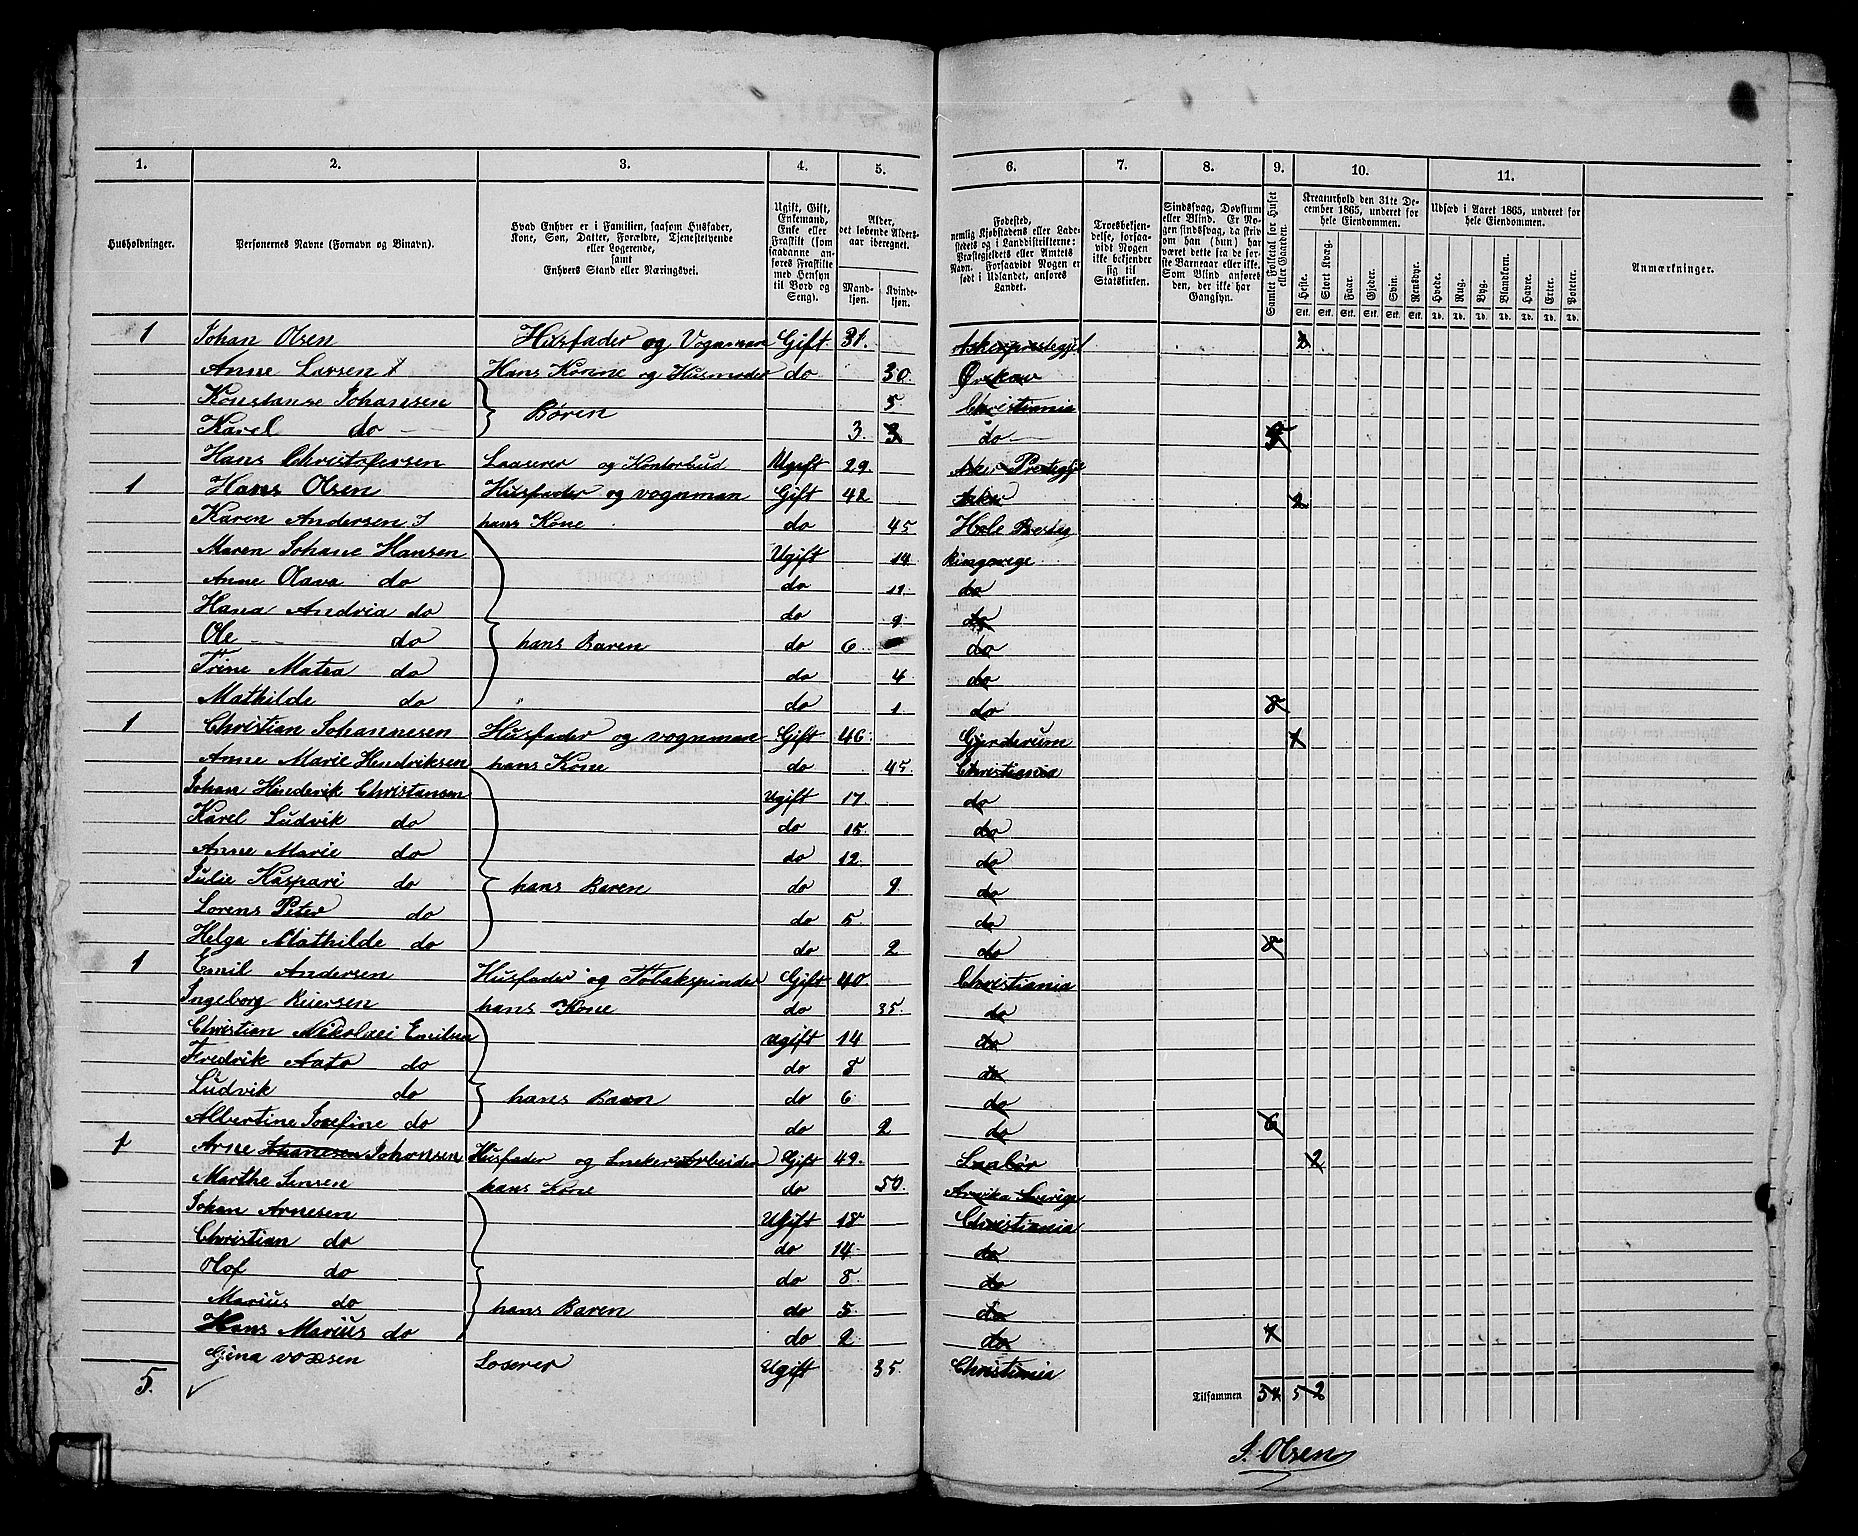 1. 2. 3. 4. 5. 6. 7. 8. 9. 10. 11.
Husholdninger.
Personernes Navne (Fornavn og Binavn).
Hvad Enhver er i Familien, saasom Husfader,
Kone, Søn, Datter, Forældre, Tjenestetyende
eller Logerende,
samt
Enhvers Stand eller Næringsvei.
Ugift, Gift,
Enkemand,
Enke eller
Fraskilt (som
saadanne an-
føres Fraskilte
med Hensyn
til Bord og
Seng).
Alder,
det løbende Alders-
aar iberegnet.
Mand-
kjøn.
Kvinde-
kjøn.
Fødested,
nemlig Kjøbstadens eller Lade-
stedets og i Landdistrikterne:
Præstegjeldets eller Amtets
Navn. Forsaavidt Nogen er
født i Udlandet, anføres
Landet.
Troesbekjen-
delse, forsaa-
vidt Nogen
ikke bekjender
sig til
Statskirken.
Sindssvag, Døvstum
eller Blind. Er No-
gen sindssvag, da skriv
om han (hun) har
været dette fra de før-
ste Barneaar eller ikke.
Som Blind anføres
den, der ikke har
Gangsyn.
Samlet Folketal for Huset
eller Gaarden.
Kreaturhold den 31te De-
cember 1865, underet for
hele Eiendommen.
Heste. Stort Kvæg. Faar. Gjeder. Svin. Rensdyr.
Stk. Stk. Stk. Stk. Stk. Stk.
Udsæd i Aaret 1865, underet for
hele Eiendommen.
Hvede. Rug. Byg. Blandkorn. Havre. Erter. Poteter.
Td. Td. Td. Td. Td. Td. Td.
Anmærkninger.
1 Johan Olsen Husfader og Vognman Gift 31. Askerpræstegjel 2
Anne Larsen Hans Konne og Husmoder do 30.
Konstanse Johansen 5 Christiania
Karel do Børen 3. 3 do 5
Hans Christofersen Laaserer og Kontorbud Ugift 29. Asker Prestegjel
1 Hans Olsen Husfader og vognman Gift 42 Asker 2
Karen Andersen hans Kone do 45 Hole
Maren Johane Hansen Ugift 14 Ringerege
Anne Olava do do 11. do
Hana Andria do do 9. do
Ole do hans Baren do 6 do
Trine Matea do do 4 do
Mathilde do do 1. do 8
1 Christian Johannesen Husfader og vognman Gift 46. Gjerderum 1
Anne Marie Hendriksen hans Kone do 45. Christiania
Johan Hinderik Christansen Ugift 17 do
Karel Ludvik do do 15. do
Anne Marie do do 12. do
Julie Kaspari do hans Baren do 9. do
Lorens Peter do do 5. do
Helga Mathilde do do 2 do 8
1 Emil Andersen Husfader og Tobakspinder Gift 40. Christiania
Ingeborg hans Kone do 35. do
Christian Nikolaei Emilsen ugift 14 do
Fredrik do do 8 do
Ludvik do hans Baren do 6. do
Albertine Josefine do do 2 do 6
1 Arne Johansen Husfader og Sneker Arbeider Gift 49. 2
Marthe Jensen hans Kone do 50. Arvika Sverige
Johan Arnesen Ugift 18 Christiania
Christian do do 14. do
Olof do do 8. do
Marius do hans Baren do 5. do
Hans Marius do do 2 do 7
Gina Loserer Ugift 35. Christiania
5. Tilsammen 34 5 2
J. Olsen